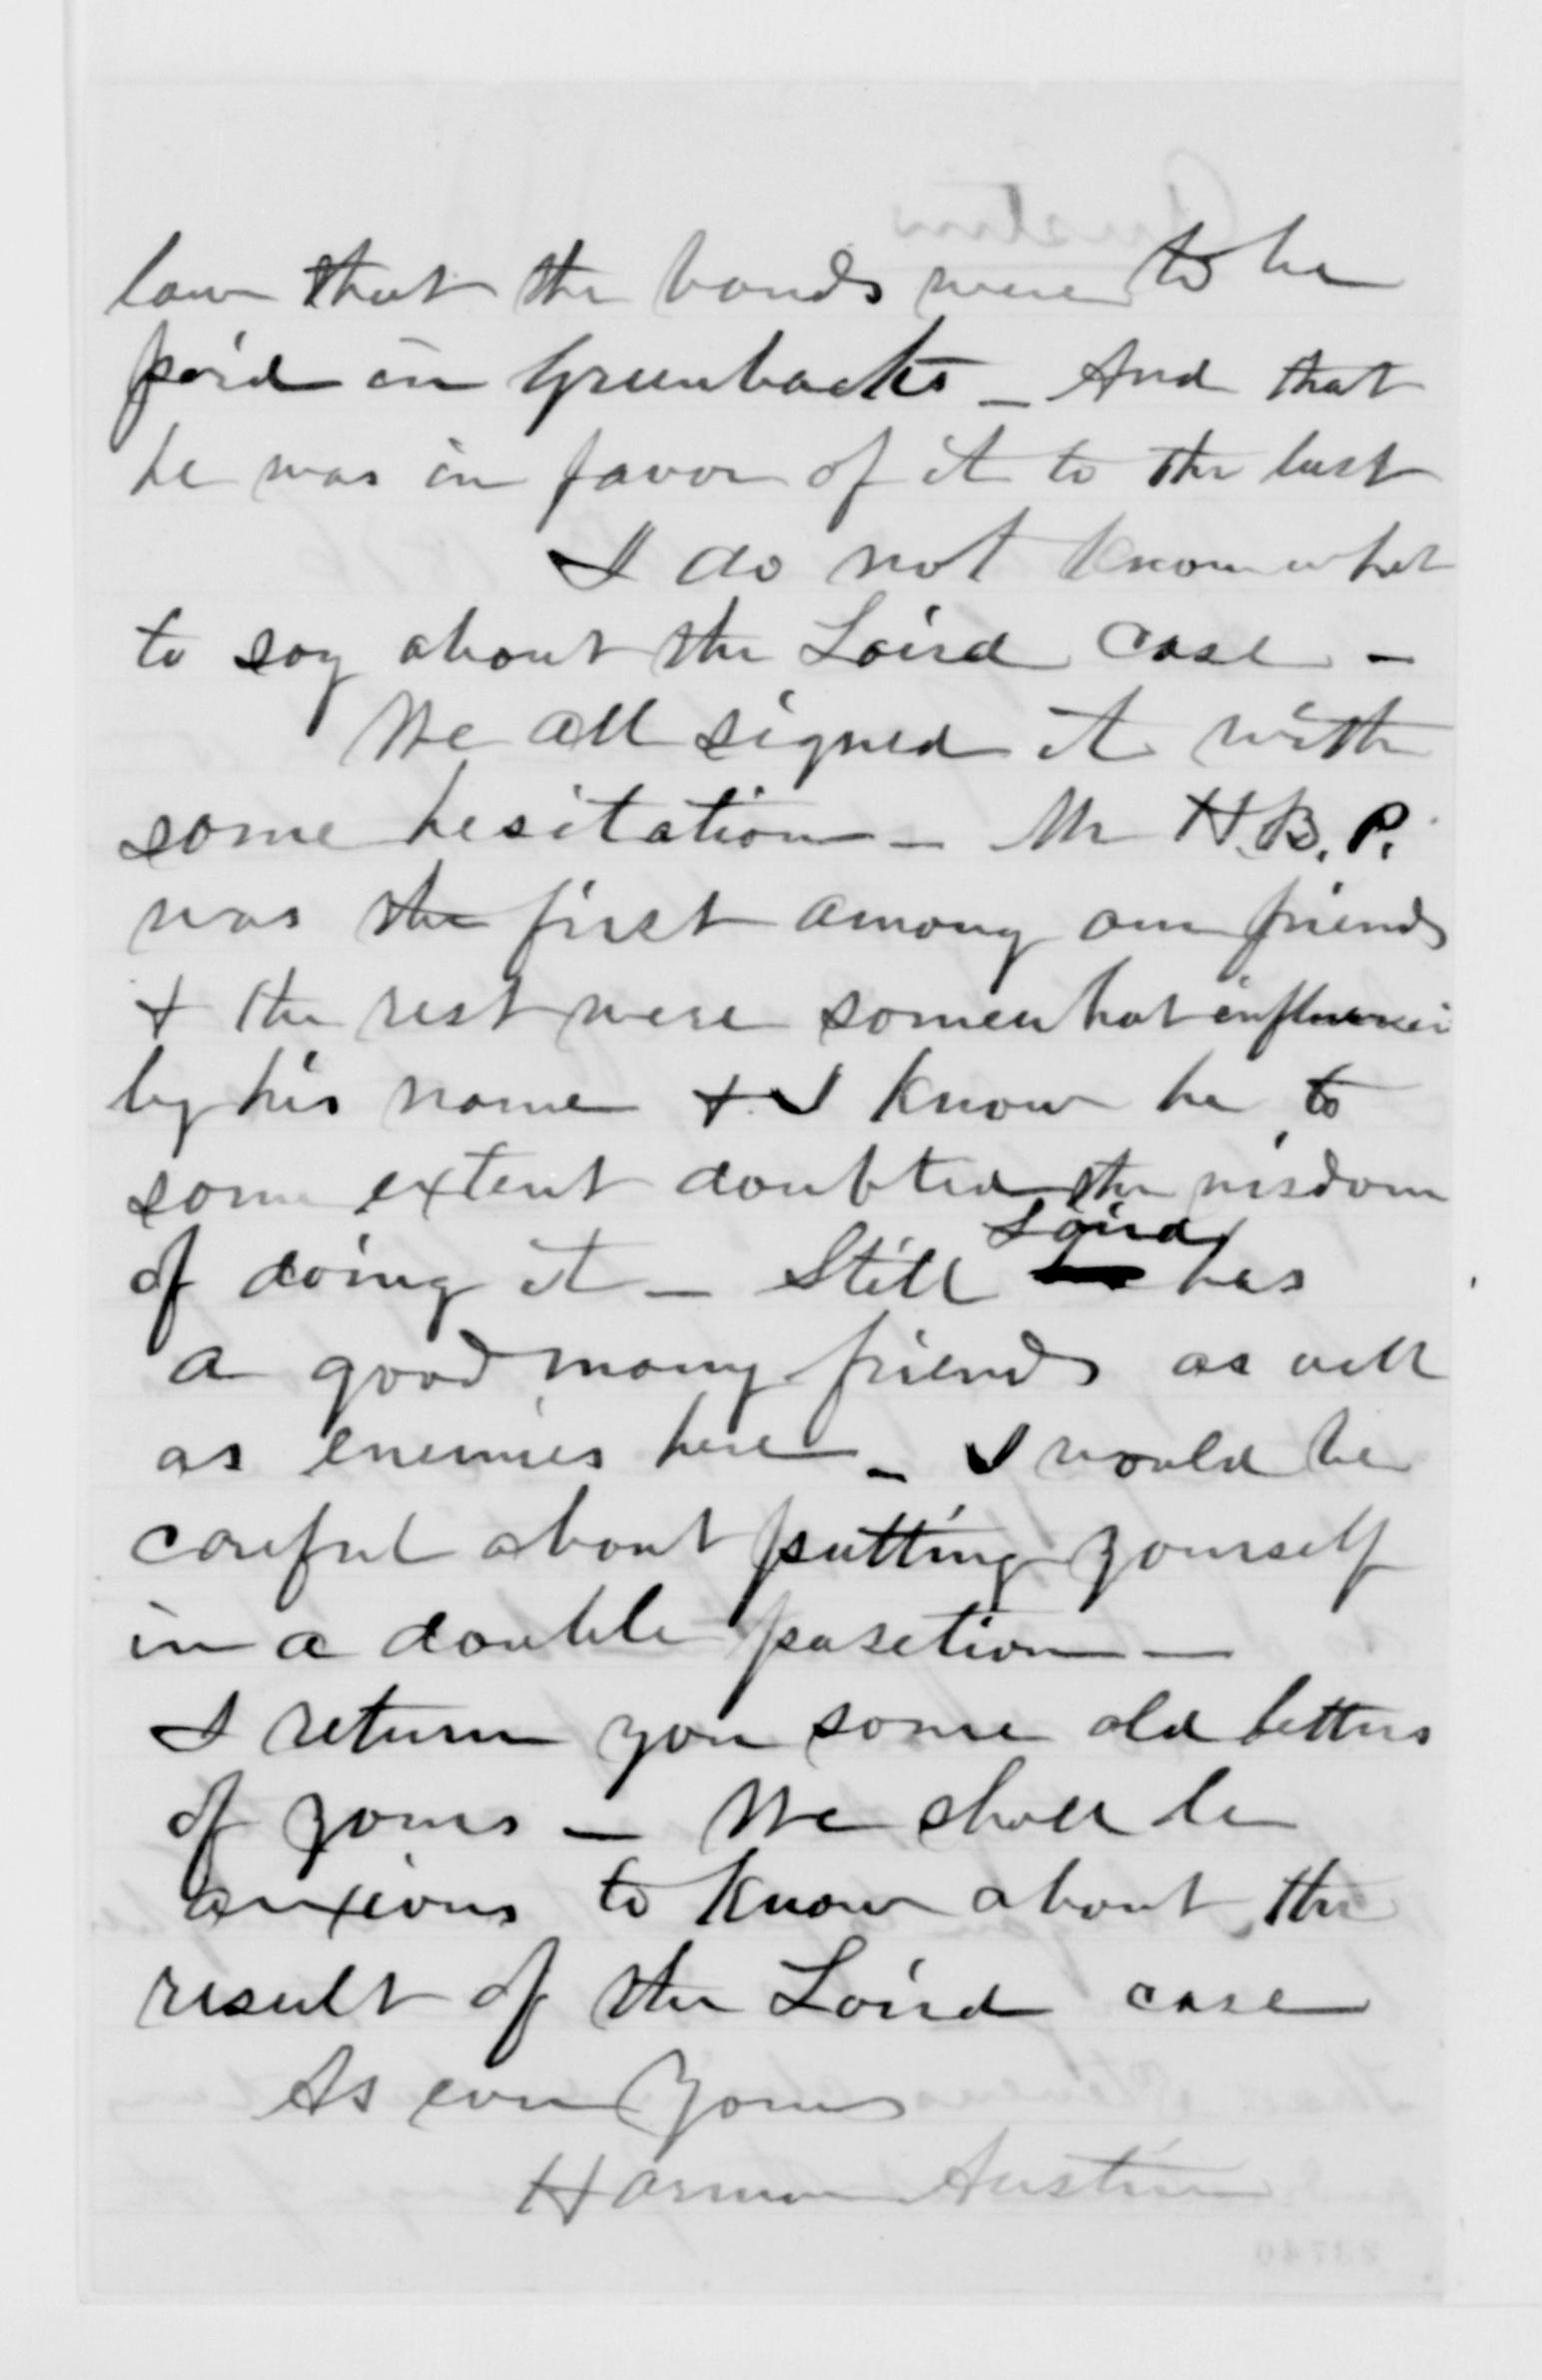 law that the bonds were to be
paid in Greenbacks _ And that
he was in favor of it to the last
I do not know what
to say about the Laird case -
We all signed it with
some hesitation - Mr H.B.P.
was the first among our friends
+ the rest were somewhat influenced
by his name + I know he to
some extent doubted the wisdom
of doing it - Still Laird has
a good many friends as well
as enemies here - I would be
careful about putting yourself
in a double position -
I return you some old letters
of yours - We shall be
anxious to know about the
result of the Laird case
As ever Yours
Harmon Austin